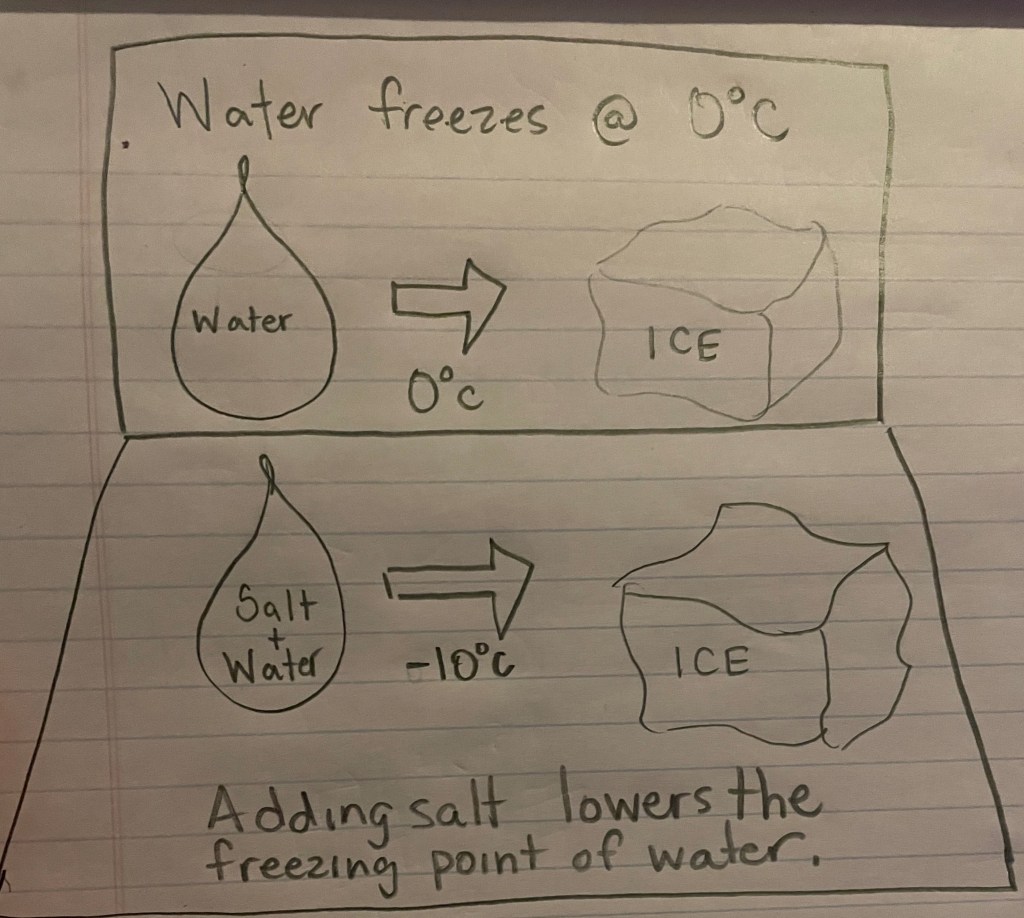 Water freezes @ 0°C
Water
0°C
ICE
Salt
+
Water
-10°C
ICE
Adding salt lowers the
freezing point of water.